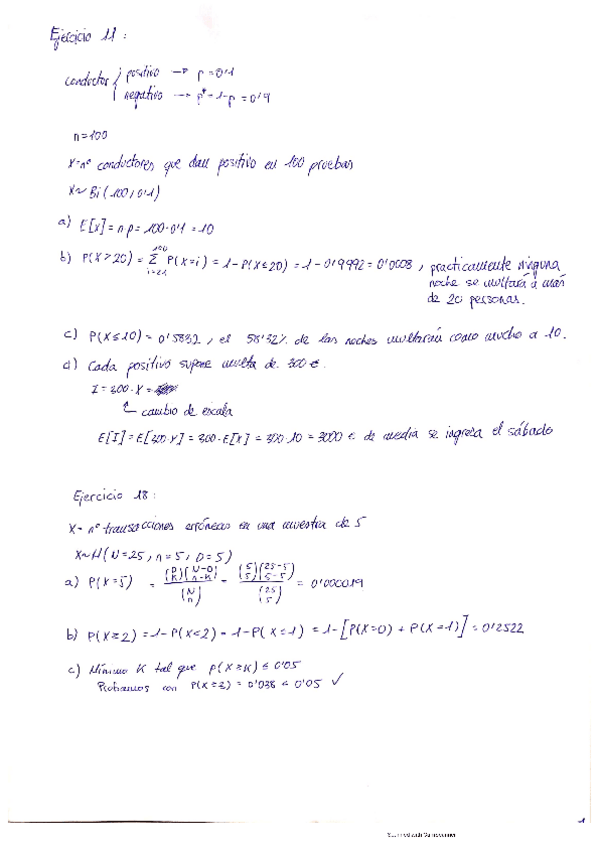 Ejercicio 11:
conductor { positivo → p = 0'1
negativo → p* = 1-p = 0'9
n=100
X=nº conductores que dan positivo en 100 pruebas
X~ Bi(100, 0'1)
a) E[X] = n p = 100·0'1 = 10
b) P(X>20) = Σ P(X=i) = 1-P(X≤20) = 1-0'9992 = 0'0008, practicamente ninguna
100
i=21
noche se multará a más
de 20 personas.
c) P(X≤10) = 0'5832, el 58'32% de las noches multarán como mucho a 10.
d) Cada positivo supone multa de 300 €.
I = 300·X =
cambio de escala
E[I] = E[300·X] = 300·E[X] = 300·10 = 3000 € de media se ingresa el sábado
Ejercicio 18:
X = nº transacciones erróneas en una muestra de 5
X~H(N=25, n=5, D=5)
a) P(X=5) = (D K)(N-D n-K) / (N n) = (5 5)(25-5 5-5) / (25 5) = 0'000019
b) P(X≥2) = 1-P(X<2) = 1-P(X≤1) = 1-[P(X=0) + P(X=1)] = 0'2522
c) Mínimo K tal que P(X≥K) ≤ 0'05
Probamos con P(X≥3) = 0'038 < 0'05 ✓
1